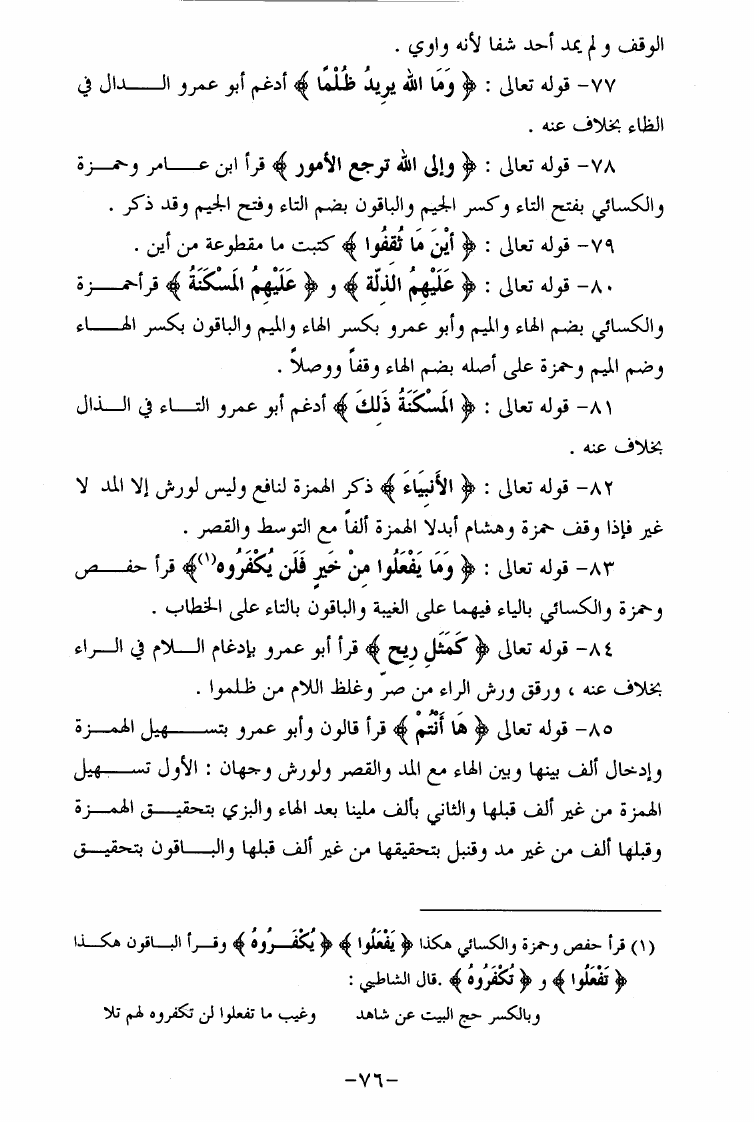 الوقف و لم يمد أحد شفا لأنه واوي .
٧٧- قوله تعالى : ﴿ وَمَا الله يريدُ ظُلْمًا ﴾ أدغم أبو عمرو الـــدال في
الظاء بخلاف عنه .
٧٨- قوله تعالى : ﴿ وإلى الله ترجع الأمور ﴾ قرأ ابن عـــامر وحمـــزة
والكسائي بفتح التاء وكسر الجيم والباقون بضم التاء وفتح الجيم وقد ذكر .
٧٩- قوله تعالى : ﴿ أَيْنَ مَا ثُقِفُوا ﴾ كتبت ما مقطوعة من أين .
٨٠- قوله تعالى : ﴿ عَلَيْهِمُ الذلّة ﴾ و ﴿ عَلَيْهِمُ المَسْكَنَةُ ﴾ قرأحمـــزة
والكسائي بضم الهاء والميم وأبو عمرو بكسر الهاء والميم والباقون بكسر الهـــاء
وضم الميم وحمزة على أصله بضم الهاء وقفاً ووصلاً .
٨١- قوله تعالى : ﴿ المَسْكَنَةُ ذَلِكَ ﴾ أدغم أبو عمرو التـــاء في الـــذال
بخلاف عنه .
٨٢- قوله تعالى : ﴿ الأَنبِيَاءَ ﴾ ذكر الهمزة لنافع وليس لورش إلا المد لا
غير فإذا وقف حمزة وهشام أبدلا الهمزة ألفاً مع التوسط والقصر .
٨٣- قوله تعالى : ﴿ وَمَا يَفْعَلُوا مِنْ خَيرٍ فَلَن يُكْفَرُوه(١)﴾ قرأ حفـــص
وحمزة والكسائي بالياء فيهما على الغيبة والباقون بالتاء على الخطاب .
٨٤- قوله تعالى ﴿ كَمَثَلِ رِيحٍ ﴾ قرأ أبو عمرو بإدغام الـــلام في الـــراء
بخلاف عنه ، ورقق ورش الراء من صرّ وغلظ اللام من ظلموا .
٨٥- قوله تعالى ﴿ هَا أَنْتُمْ ﴾ قرأ قالون وأبو عمرو بتســـهيل الهمـــزة
وإدخال ألف بينها وبين الهاء مع المد والقصر ولورش وجهان : الأول تســـهيل
الهمزة من غير ألف قبلها والثاني بألف ملينا بعد الهاء والبزي بتحقيـــق الهمـــزة
وقبلها ألف من غير مد وقنبل بتحقيقها من غير ألف قبلها والبـــاقون بتحقيـــق
(١) قرأ حفص وحمزة والكسائي هكذا ﴿ يَفْعَلُوا ﴾ ﴿ يُكْفَـــرُوهُ ﴾ وقـــرأ البـــاقون هكـــذا
﴿ تَفْعَلُوا ﴾ و ﴿ تُكْفَرُوهُ ﴾ .قال الشاطبي :
وبالكسر حج البيت عن شاهد وغيب ما تفعلوا لن تكفروه لهم تلا
-٧٦-